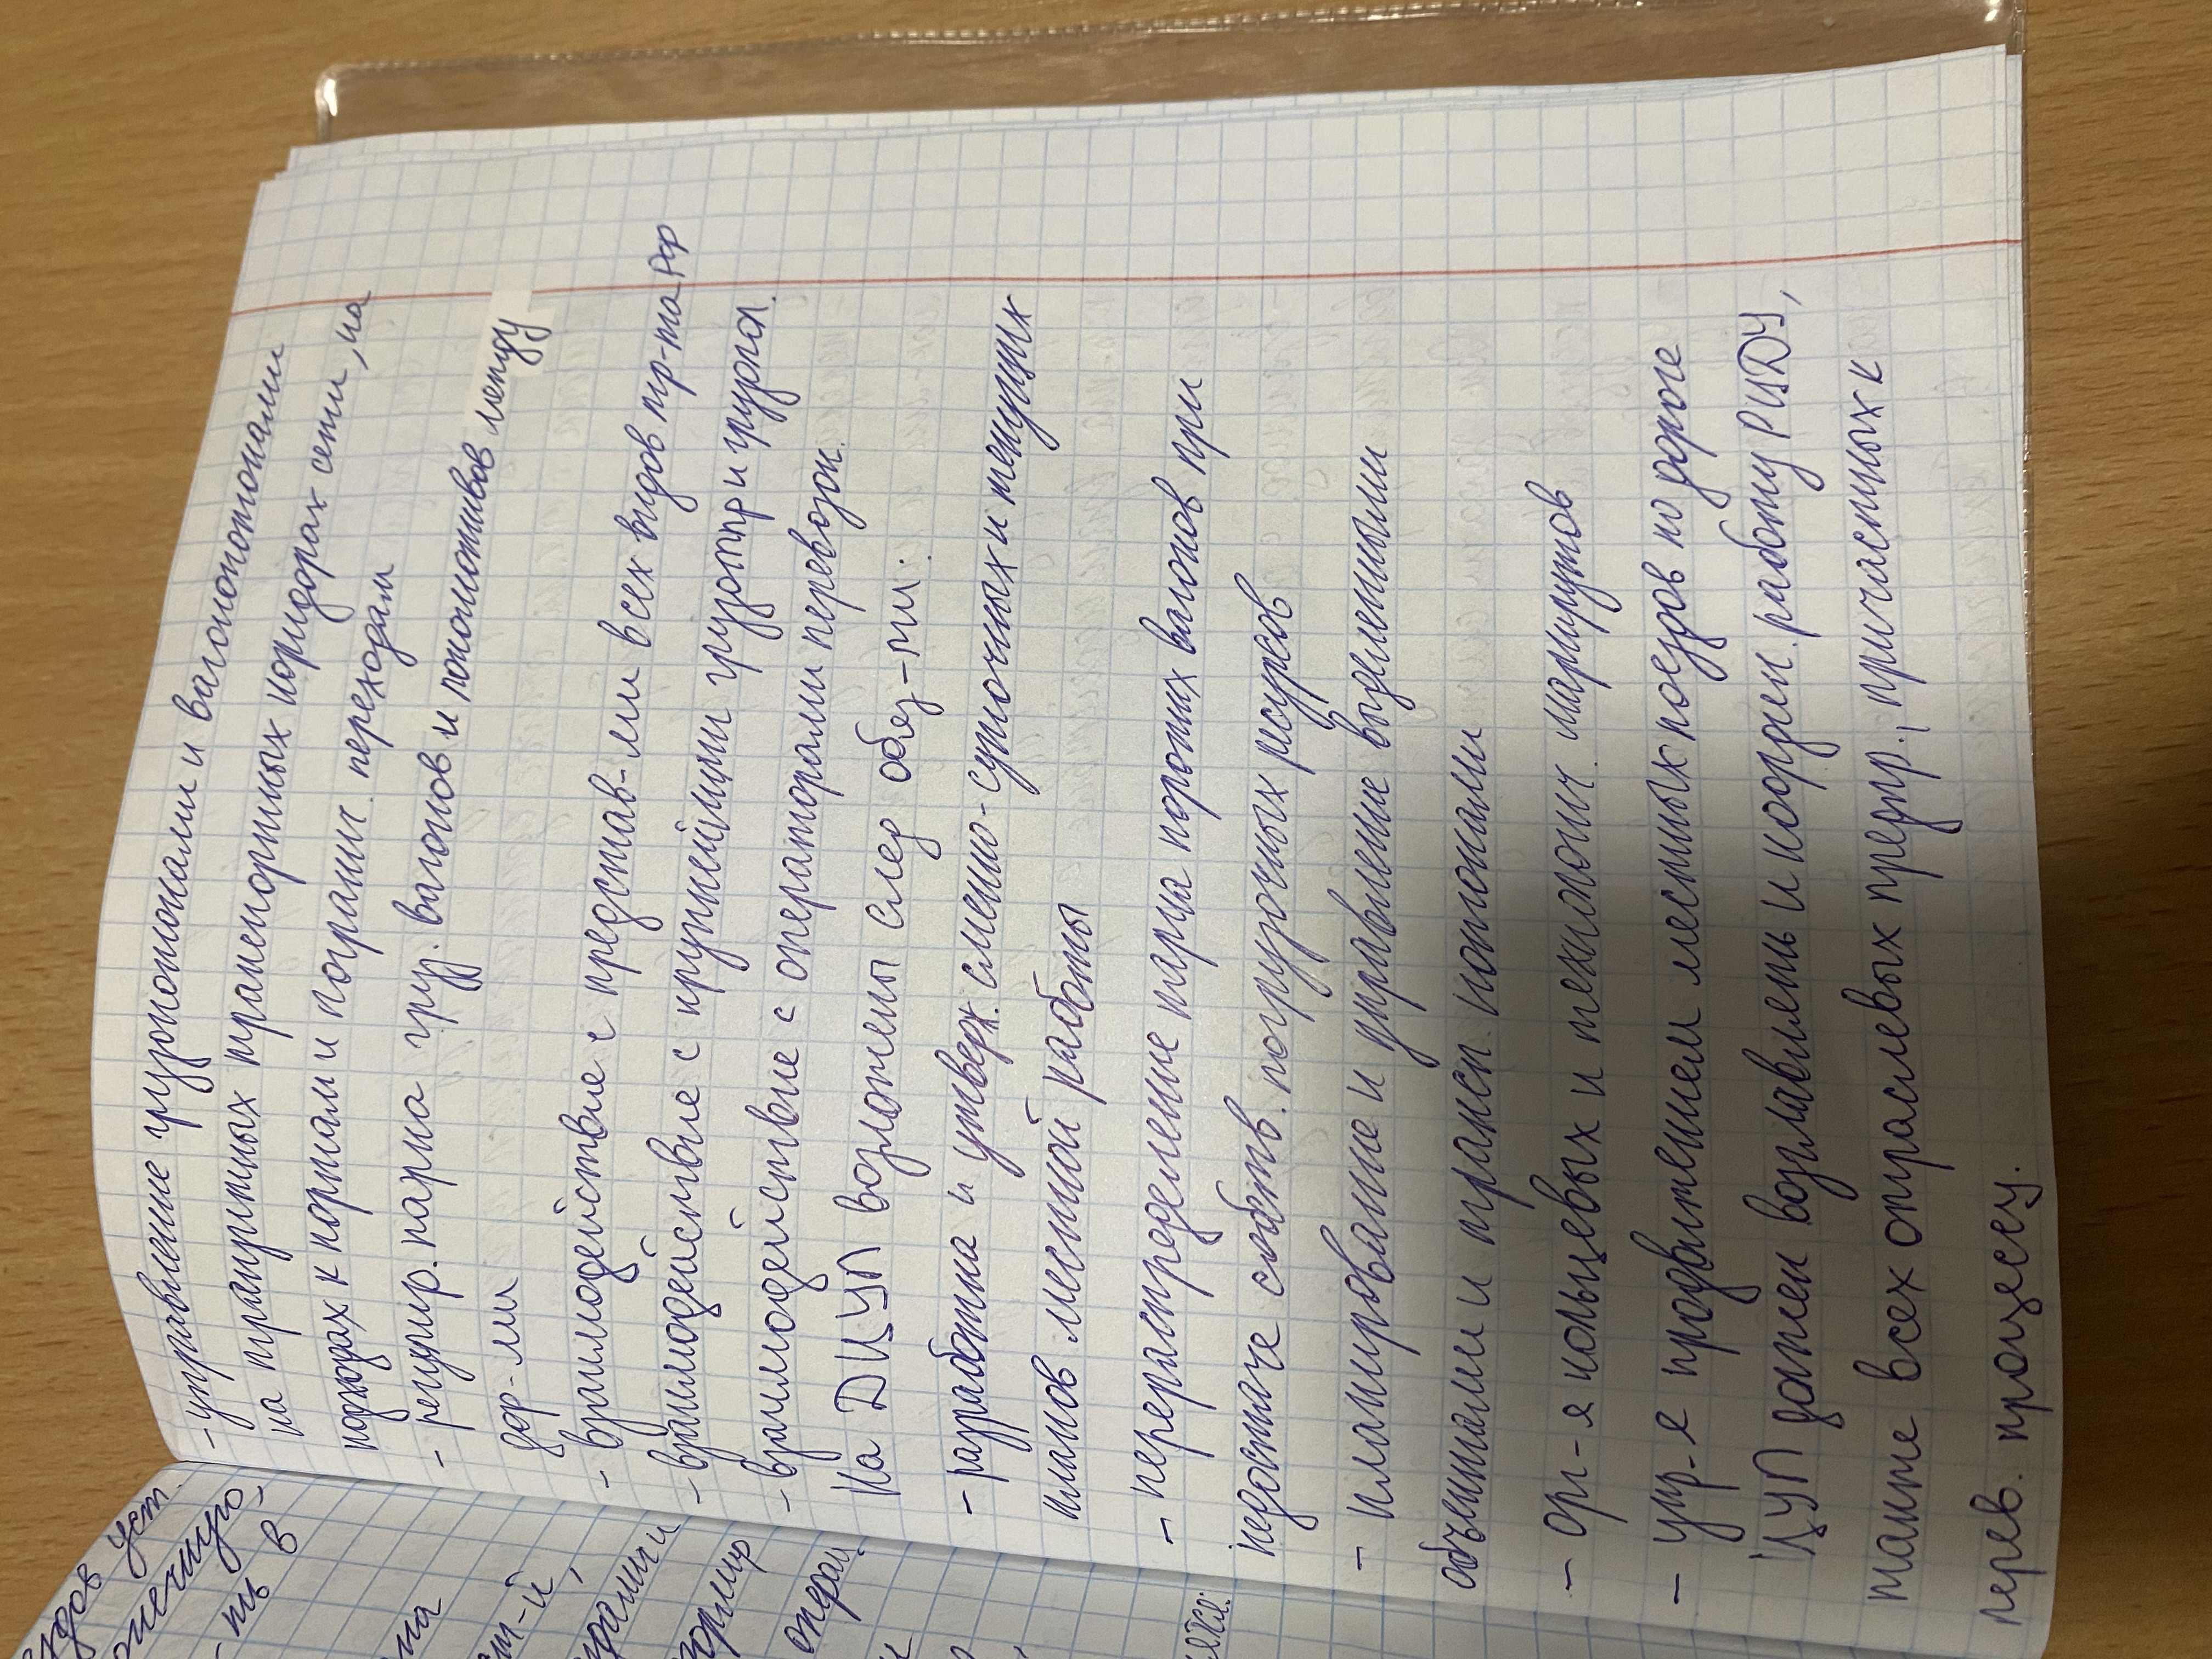 - управление грузопотоками и вагонопотоками
на приоритных транспортных коридорах сети, на
подходах к портам и погранич. переходам
- регулир. парка груз. вагонов и локомотивов между
дор-ми
- взаимодействие с представ-ми всех видов тр-та РФ
- взаимодействие с крупнейшими грузотпр и грузпол.
- взаимодействие с операторами перевозок.
На ДЦУП возложены след обяз-сти:
- разработка и утверж. сменно-суточных и текущих
планов местной работы
- перераспределение парка порожних вагонов при
недостаче собств. погрузочных ресурсов
- планирование и управление выделенными
объемными и трансп. потоками
- орг-я кольцевых и технологич. маршрутов
- упр-е продвижением местных поездов по дороге
ЦУП должен возглавлять и коорден. работу РЦДУ,
также всех отраслевых предпр., причастных к
перев. процессу.
уст.
в